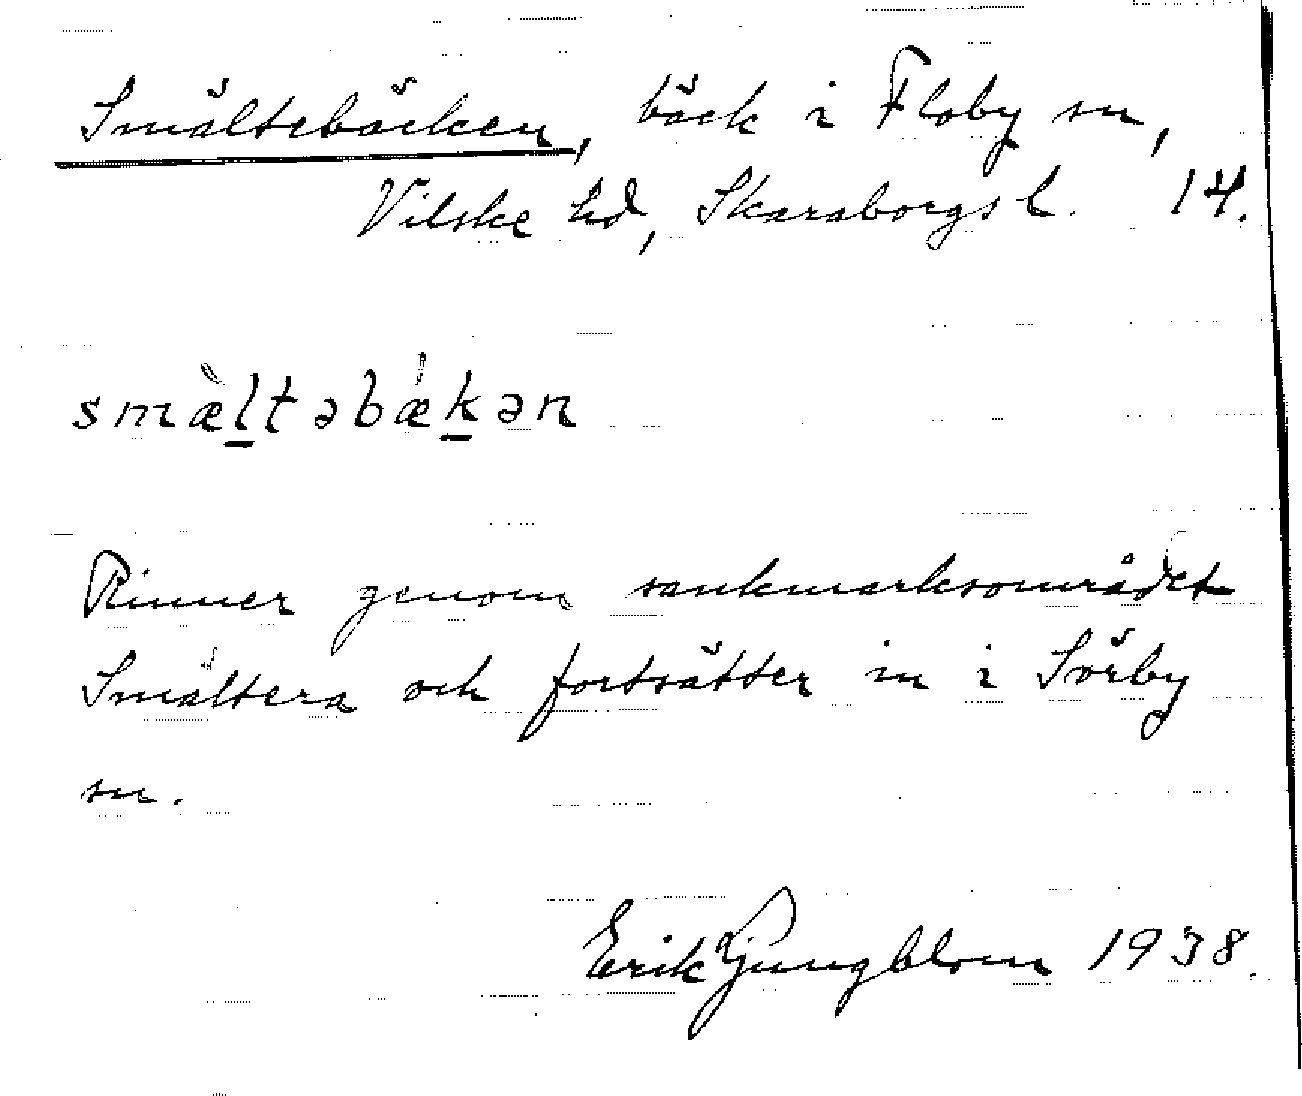 Smältebäcken, bäck i Floby sn,
Vilske hd, Skaraborgs l. 14.
smæ̀ltəbǽkən
Rinner genom sankmarksområdet
Smältera och fortsätter in i Sörby
sn.
Erik Ljungblom 1938.